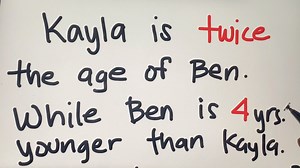 Kayla is twice
the age of Ben.
While Ben is 4 yrs.
younger than Kayla.